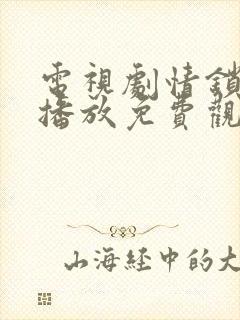 電視劇情鎖
播放免費觀
山海經中的大